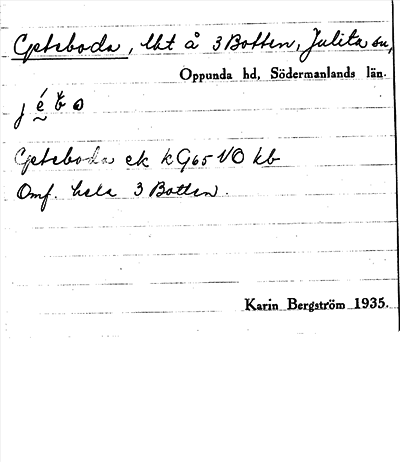 Geteboda, lht å 3 Botten, Julita sn,
Oppunda hd, Södermanlands län.
j é b o
Geteboda ek kG65 VO kb
Omf. hela 3 Botten.
Karin Bergström 1935.